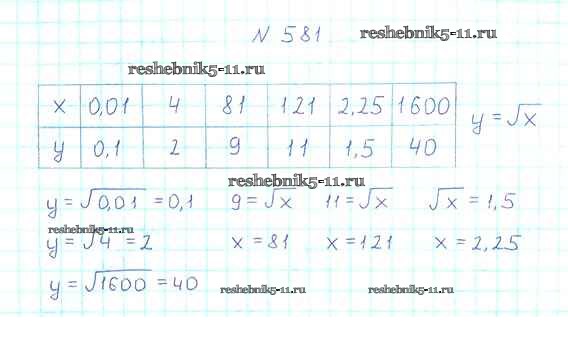 N 581 reshebnik5-11.ru
reshebnik5-11.ru
x 0,01 4 81 121 2,25 1600
y 0,1 2 9 11 1,5 40
y = √x
reshebnik5-11.ru
y = √0,01 = 0,1 9 = √x 11 = √x √x = 1,5
reshebnik5-11.ru
y = √4 = 2 x = 81 x = 121 x = 2,25
y = √1600 = 40 reshebnik5-11.ru reshebnik5-11.ru